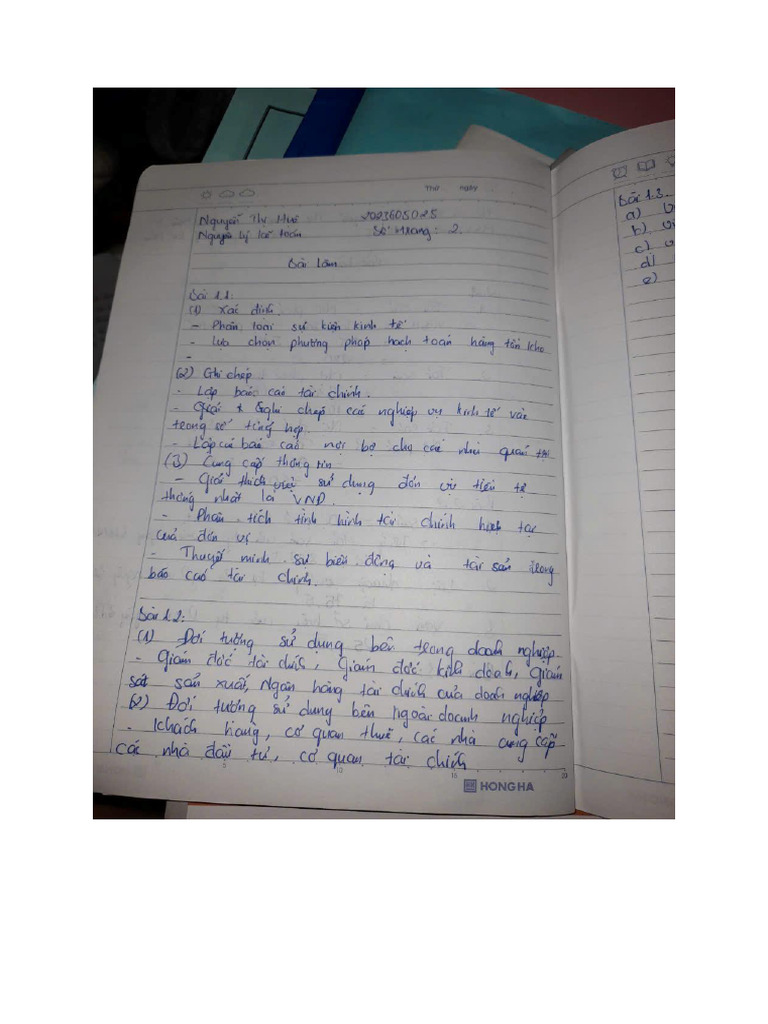 Thứ ngày
Nguyễn Thị Huê 2023605025
Nguyên lý kế toán Số trang: 2.
Bài làm
Bài 1.1:
(1) Xác định
- Phân loại sự kiện kinh tế
- Lựa chọn phương pháp hạch toán hàng tồn kho
-
(2) Ghi chép
- Lập báo cáo tài chính.
- Ghi chép các nghiệp vụ kinh tế vào
trong sổ tổng hợp.
- Lập báo cáo nội bộ cho các nhà quản trị
(3) Cung cấp thông tin
- Giải thích việc sử dụng đơn vị tiền tệ
thống nhất là VND.
- Phân tích tình hình tài chính hiện tại
của đơn vị
- Thuyết minh sự biến động và tài sản trong
báo cáo tài chính.
Bài 1.2:
(1) Đối tượng sử dụng bên trong doanh nghiệp.
- Giám đốc tài chính, Giám đốc kinh doanh, Giám
sát sản xuất, Ngân hàng tài chính của doanh nghiệp
(2) Đối tượng sử dụng bên ngoài doanh nghiệp
- Khách hàng, cơ quan thuế, các nhà cung cấp
các nhà đầu tư, cơ quan tài chính
5 10 15 20
HONG HA
Bài 1.3
a)
b)
c)
d)
e)